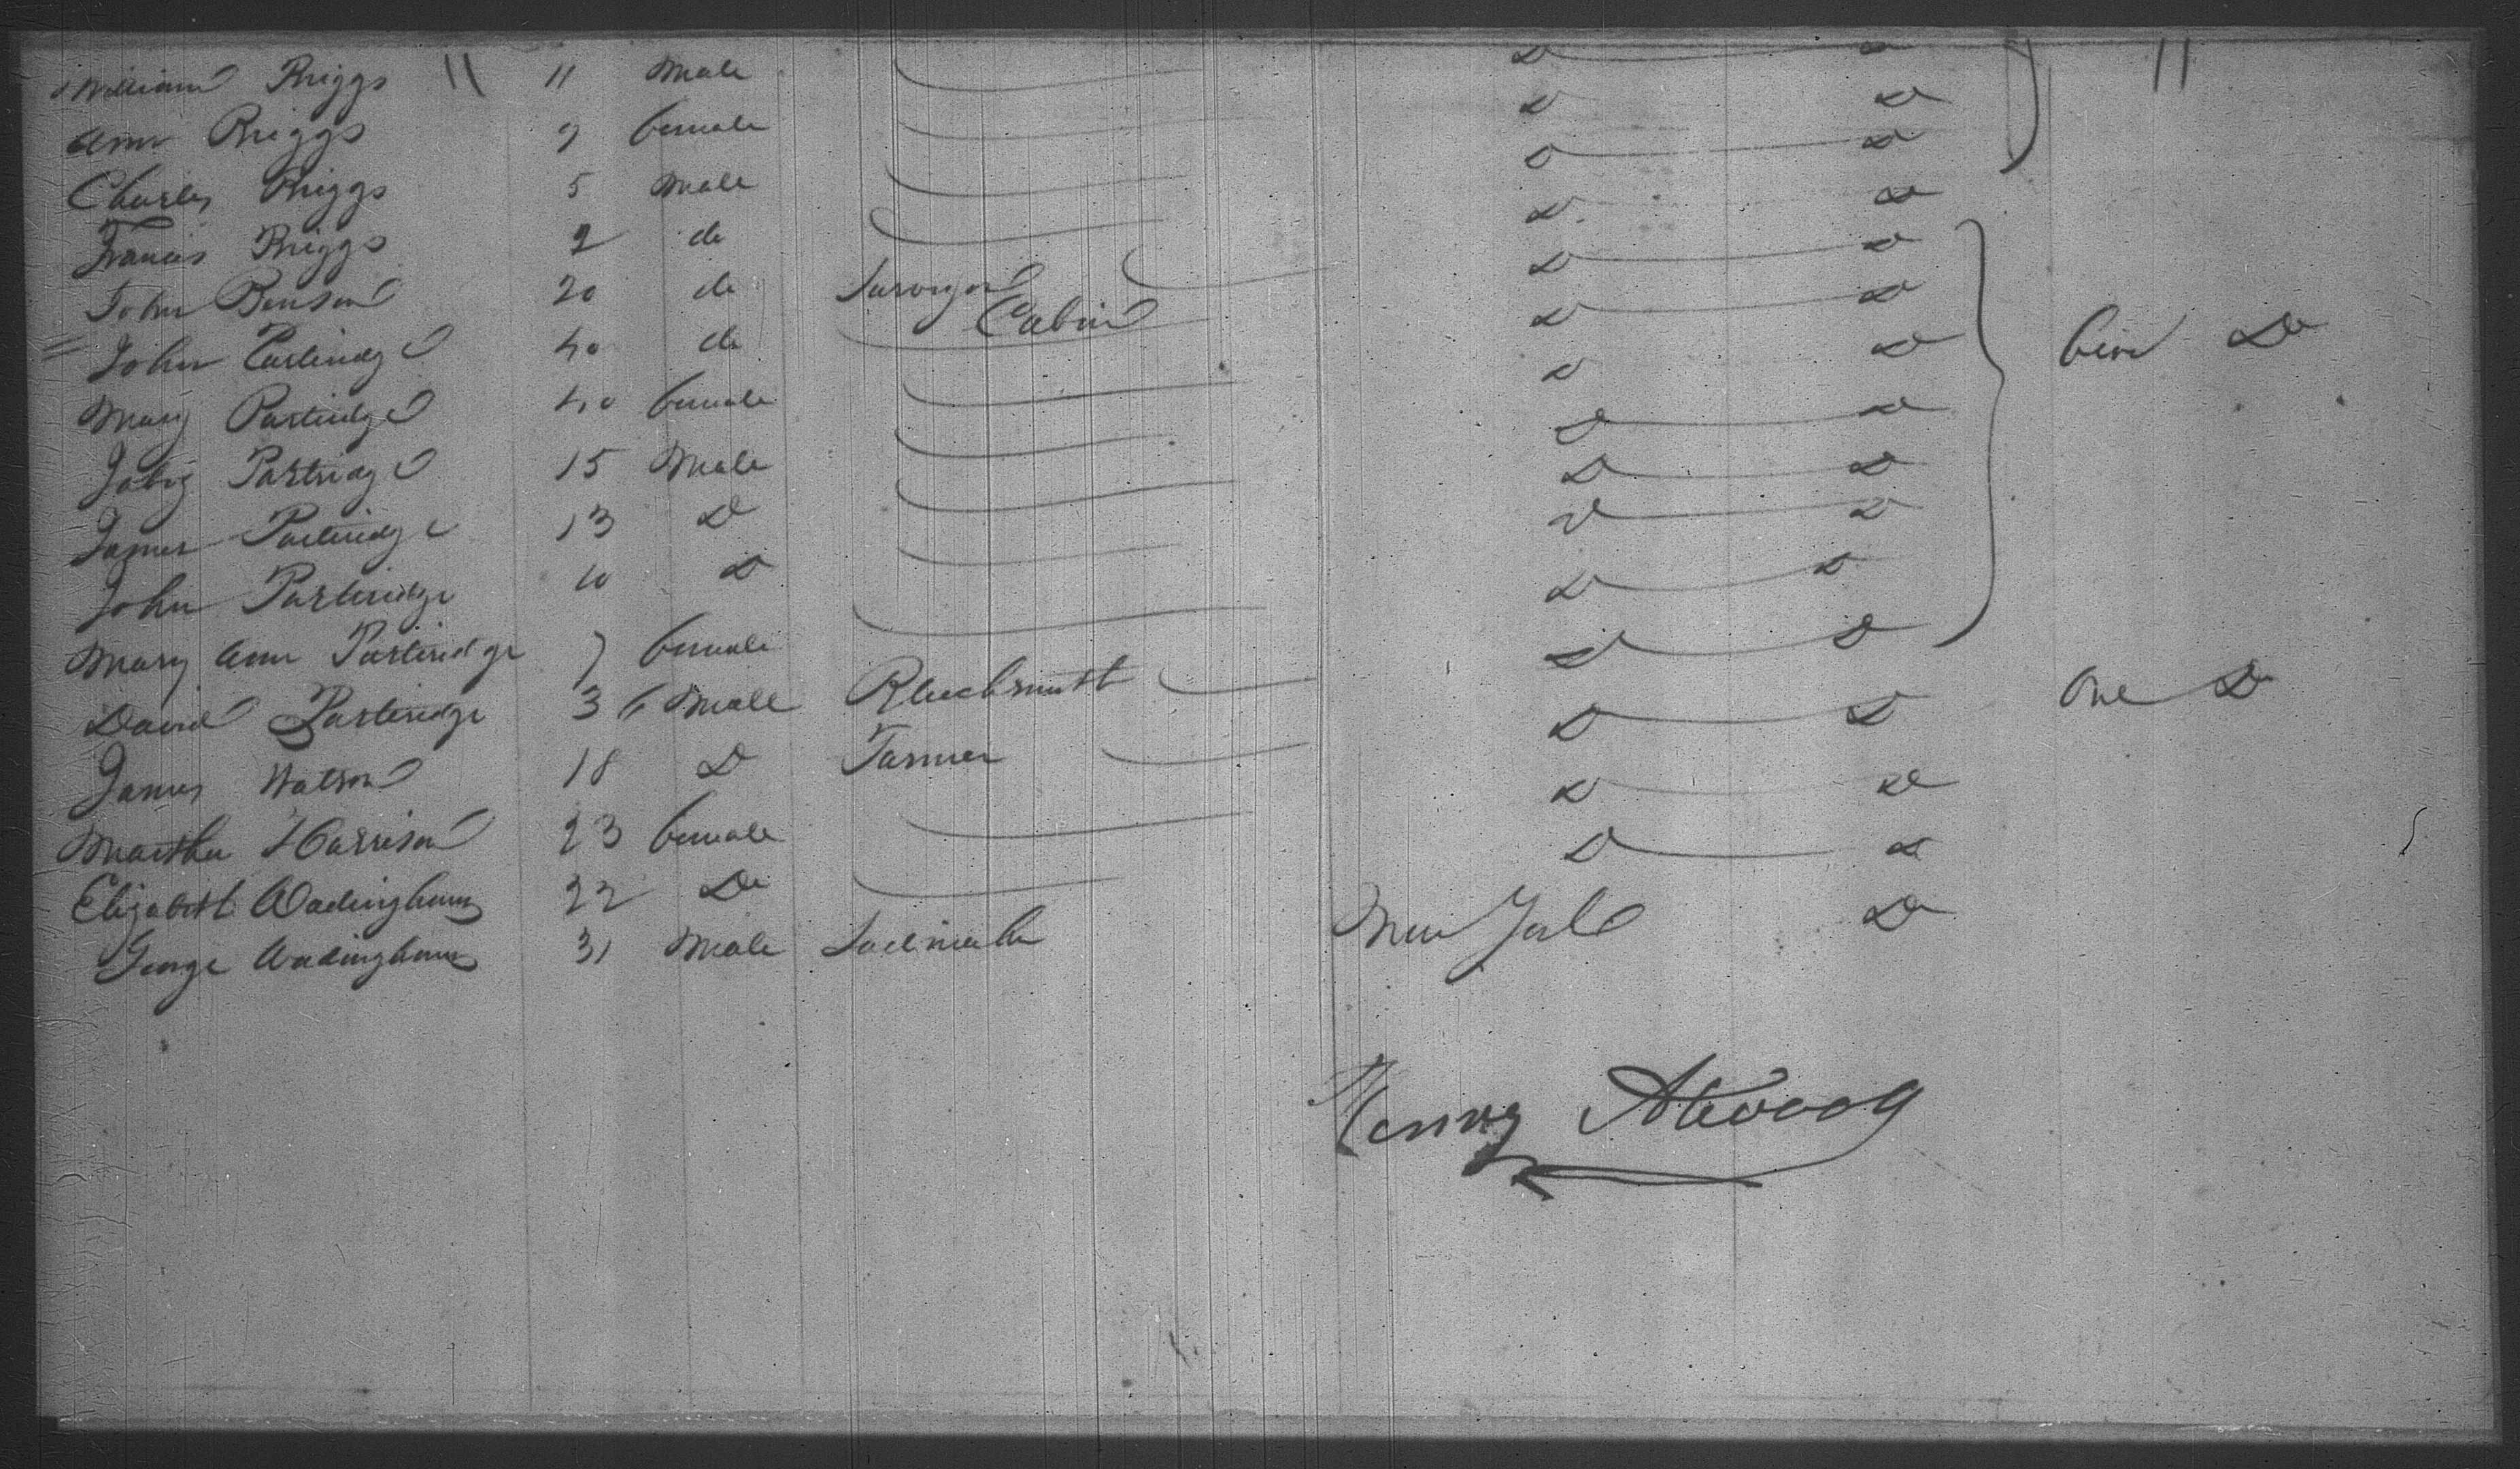 William Briggs " 11 Male D D "
Ann Briggs 9 female D D
Charles Briggs 5 Male D D
Francis Briggs 2 do D D
John Benson 20 do Surveyor D D
John Parteridge 40 do Cabin D D five Do
Mary Parteridge 40 female D D
Partridge 15 Male D D
James Parteridge 13 D D D
John Parteridge 10 D D D
Mary Ann Parteridge 7 female D D
David Parteridge 36 Male Blacksmith D D One Do
James Watson 18 D Farmer D D
Martha Harrison 23 female D D
Elizabeth Wadingham 22 Do D D
George Wadingham 31 Male Sailmaker New York Do
Henry Atwood